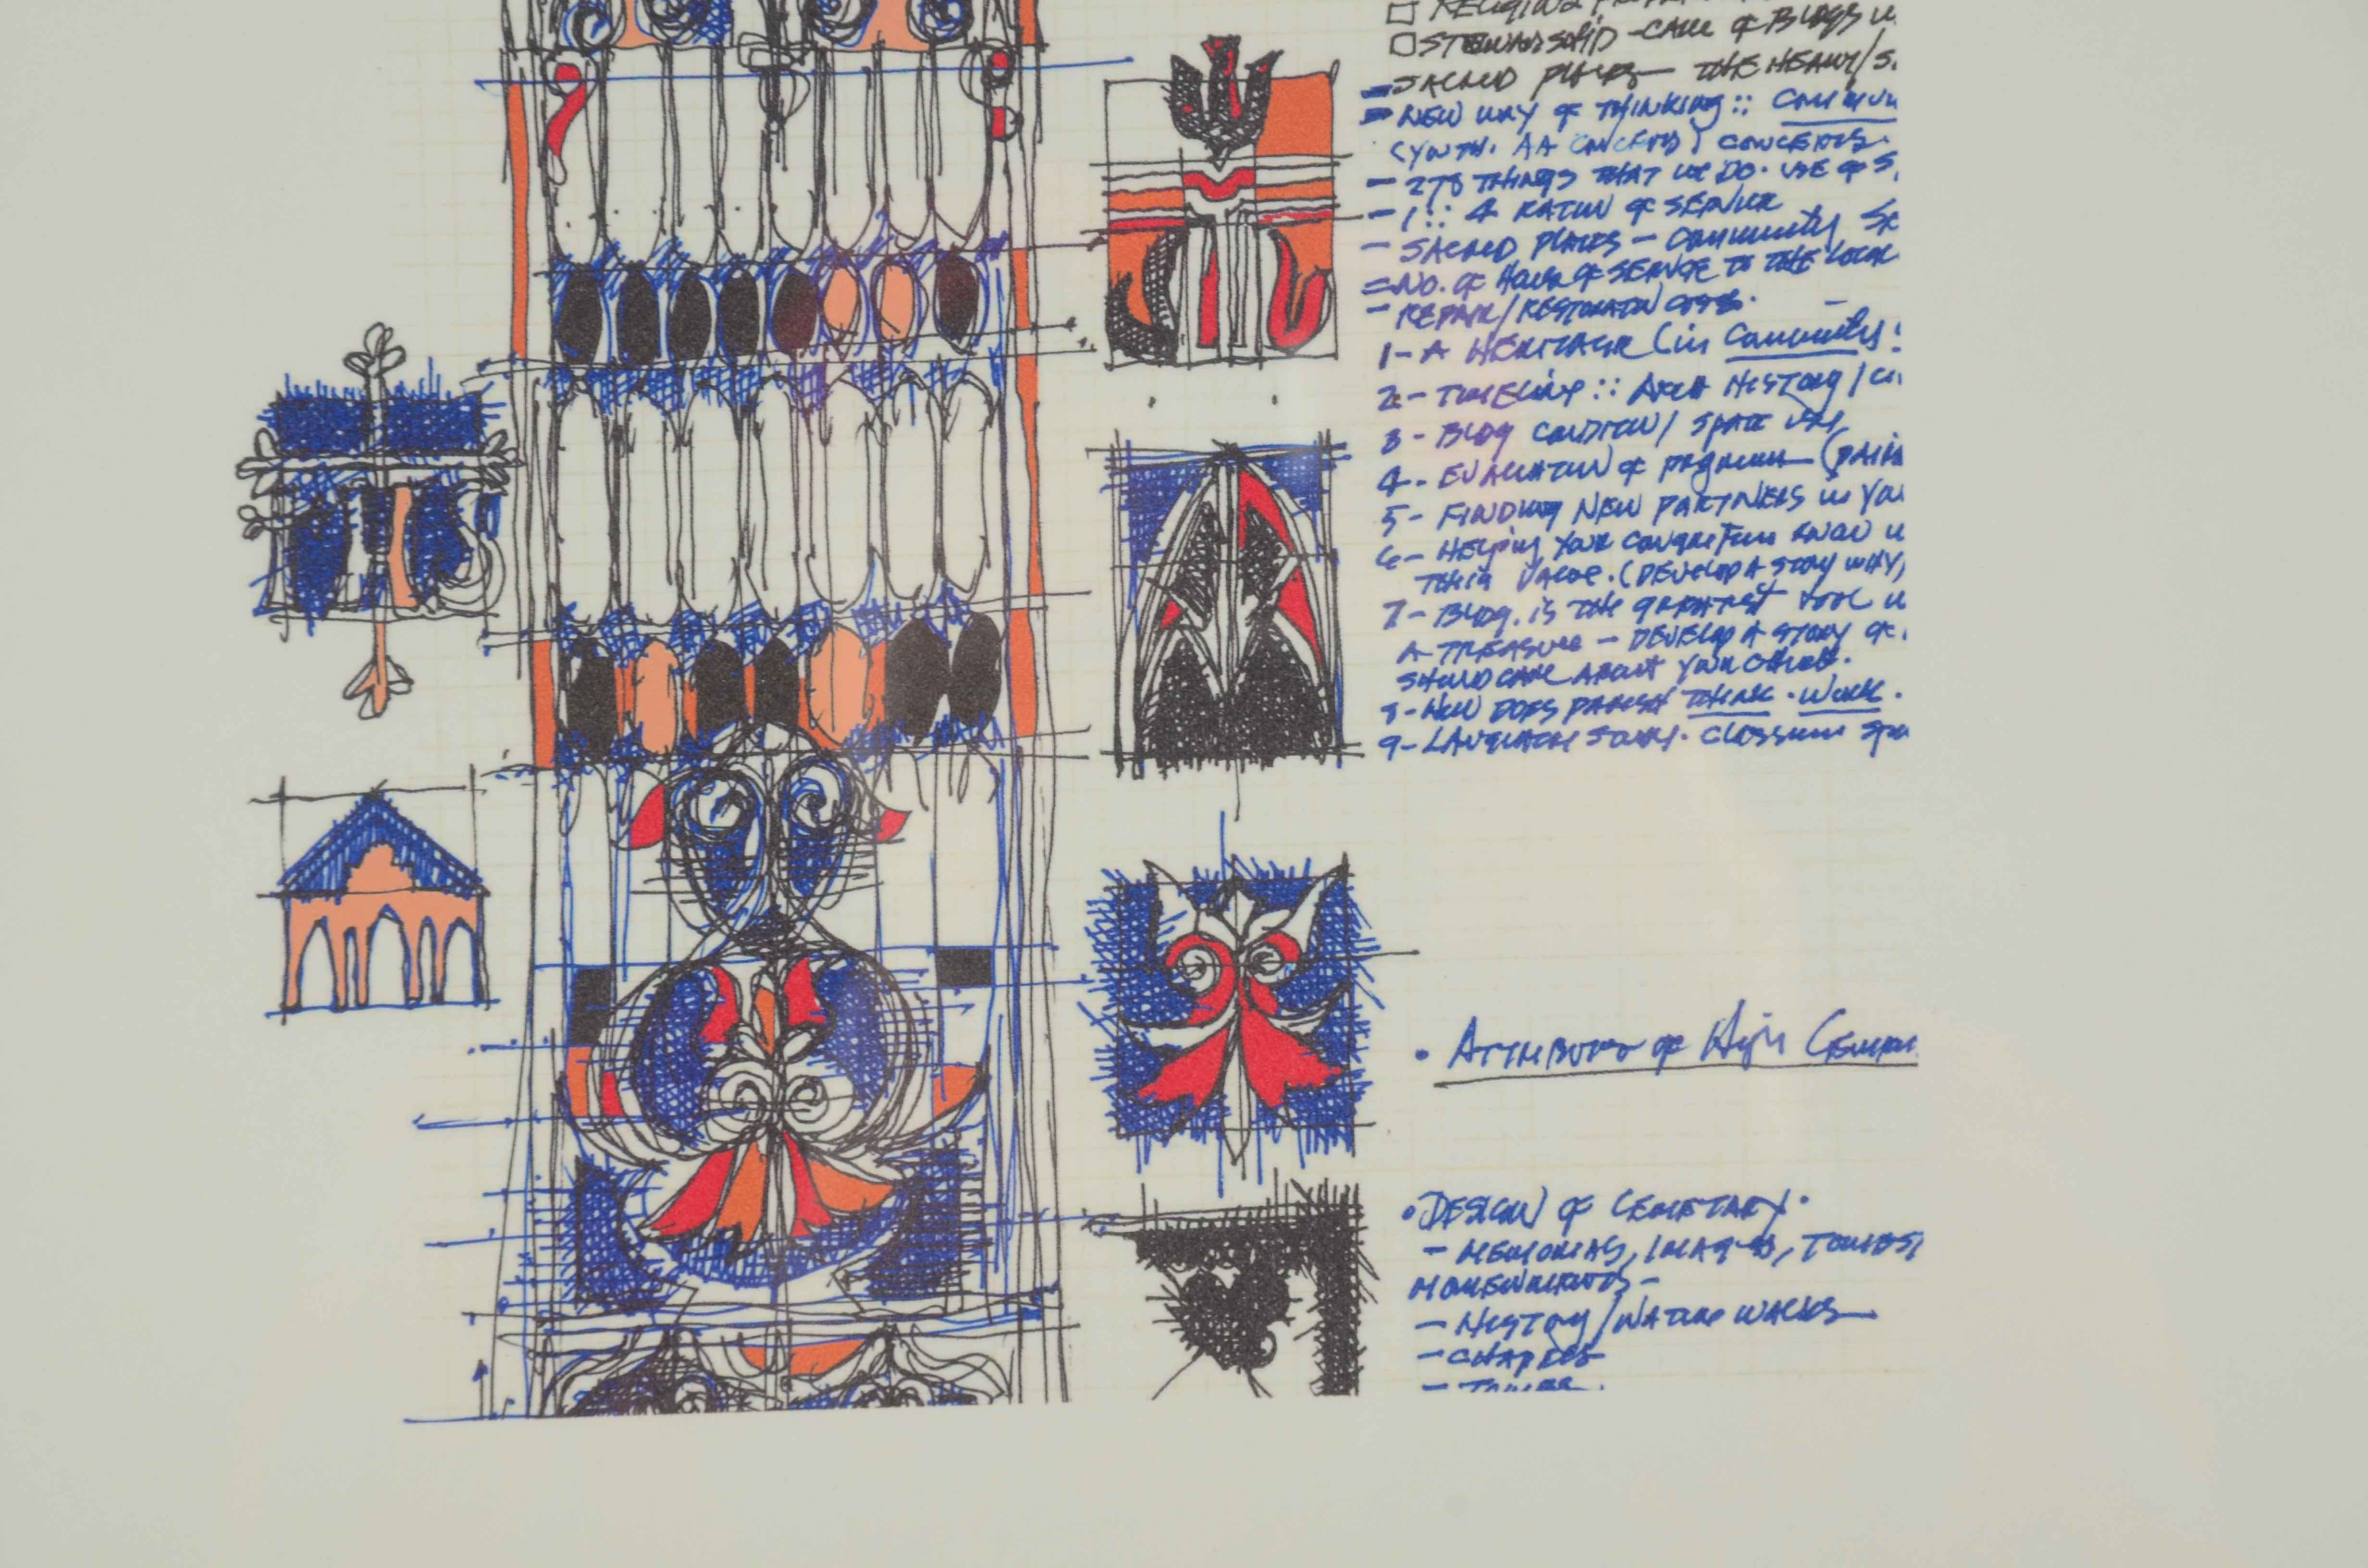 STEWARDSHIP - CARE of BLDGS
SACRED PLACES - THE HEAVY/S.
NEW WAY of THINKING :: COMMUN
(SYNTH. AA CONCEPTS) CONCEPTS.
- 278 THINGS THAT WE DO. USE of S.
- 1 :: 4 RATIO of SERVICE
- SACRED PLACES - COMMUNITY SE
= NO. OF HOURS OF SERVICE TO THE LOCAL
- REPAIR/RESTORATION COSTS.
1- A HERITAGE (in COMMUNITY
2- TIMELINE :: ARCH HISTORY /
3- BLDG CONDITION / SPACE USE,
4- EVALUATION of PROGRAM - (
5- FINDING NEW PARTNERS in YOU
6- HELPING YOUR CONGREGATION KNOW
THEIR VALUE. (DEVELOP A STORY WHY,
7- BLDG. is THE GREATEST TOOL
A TREASURE - DEVELOP A STORY OF
SHOULD CARE ABOUT YOUR CHURCH.
8- HOW DOES PARISH THINK · WORK ·
9- LANGUAGE
• ATTRIBUTES of HIGH
• DESIGN of CEMETARY.
- MEMORIALS, IMAGES, TOMBS,
MONUMENTS -
- HISTORY/NATURE WALKS
- CHAPELS
- TOWER.